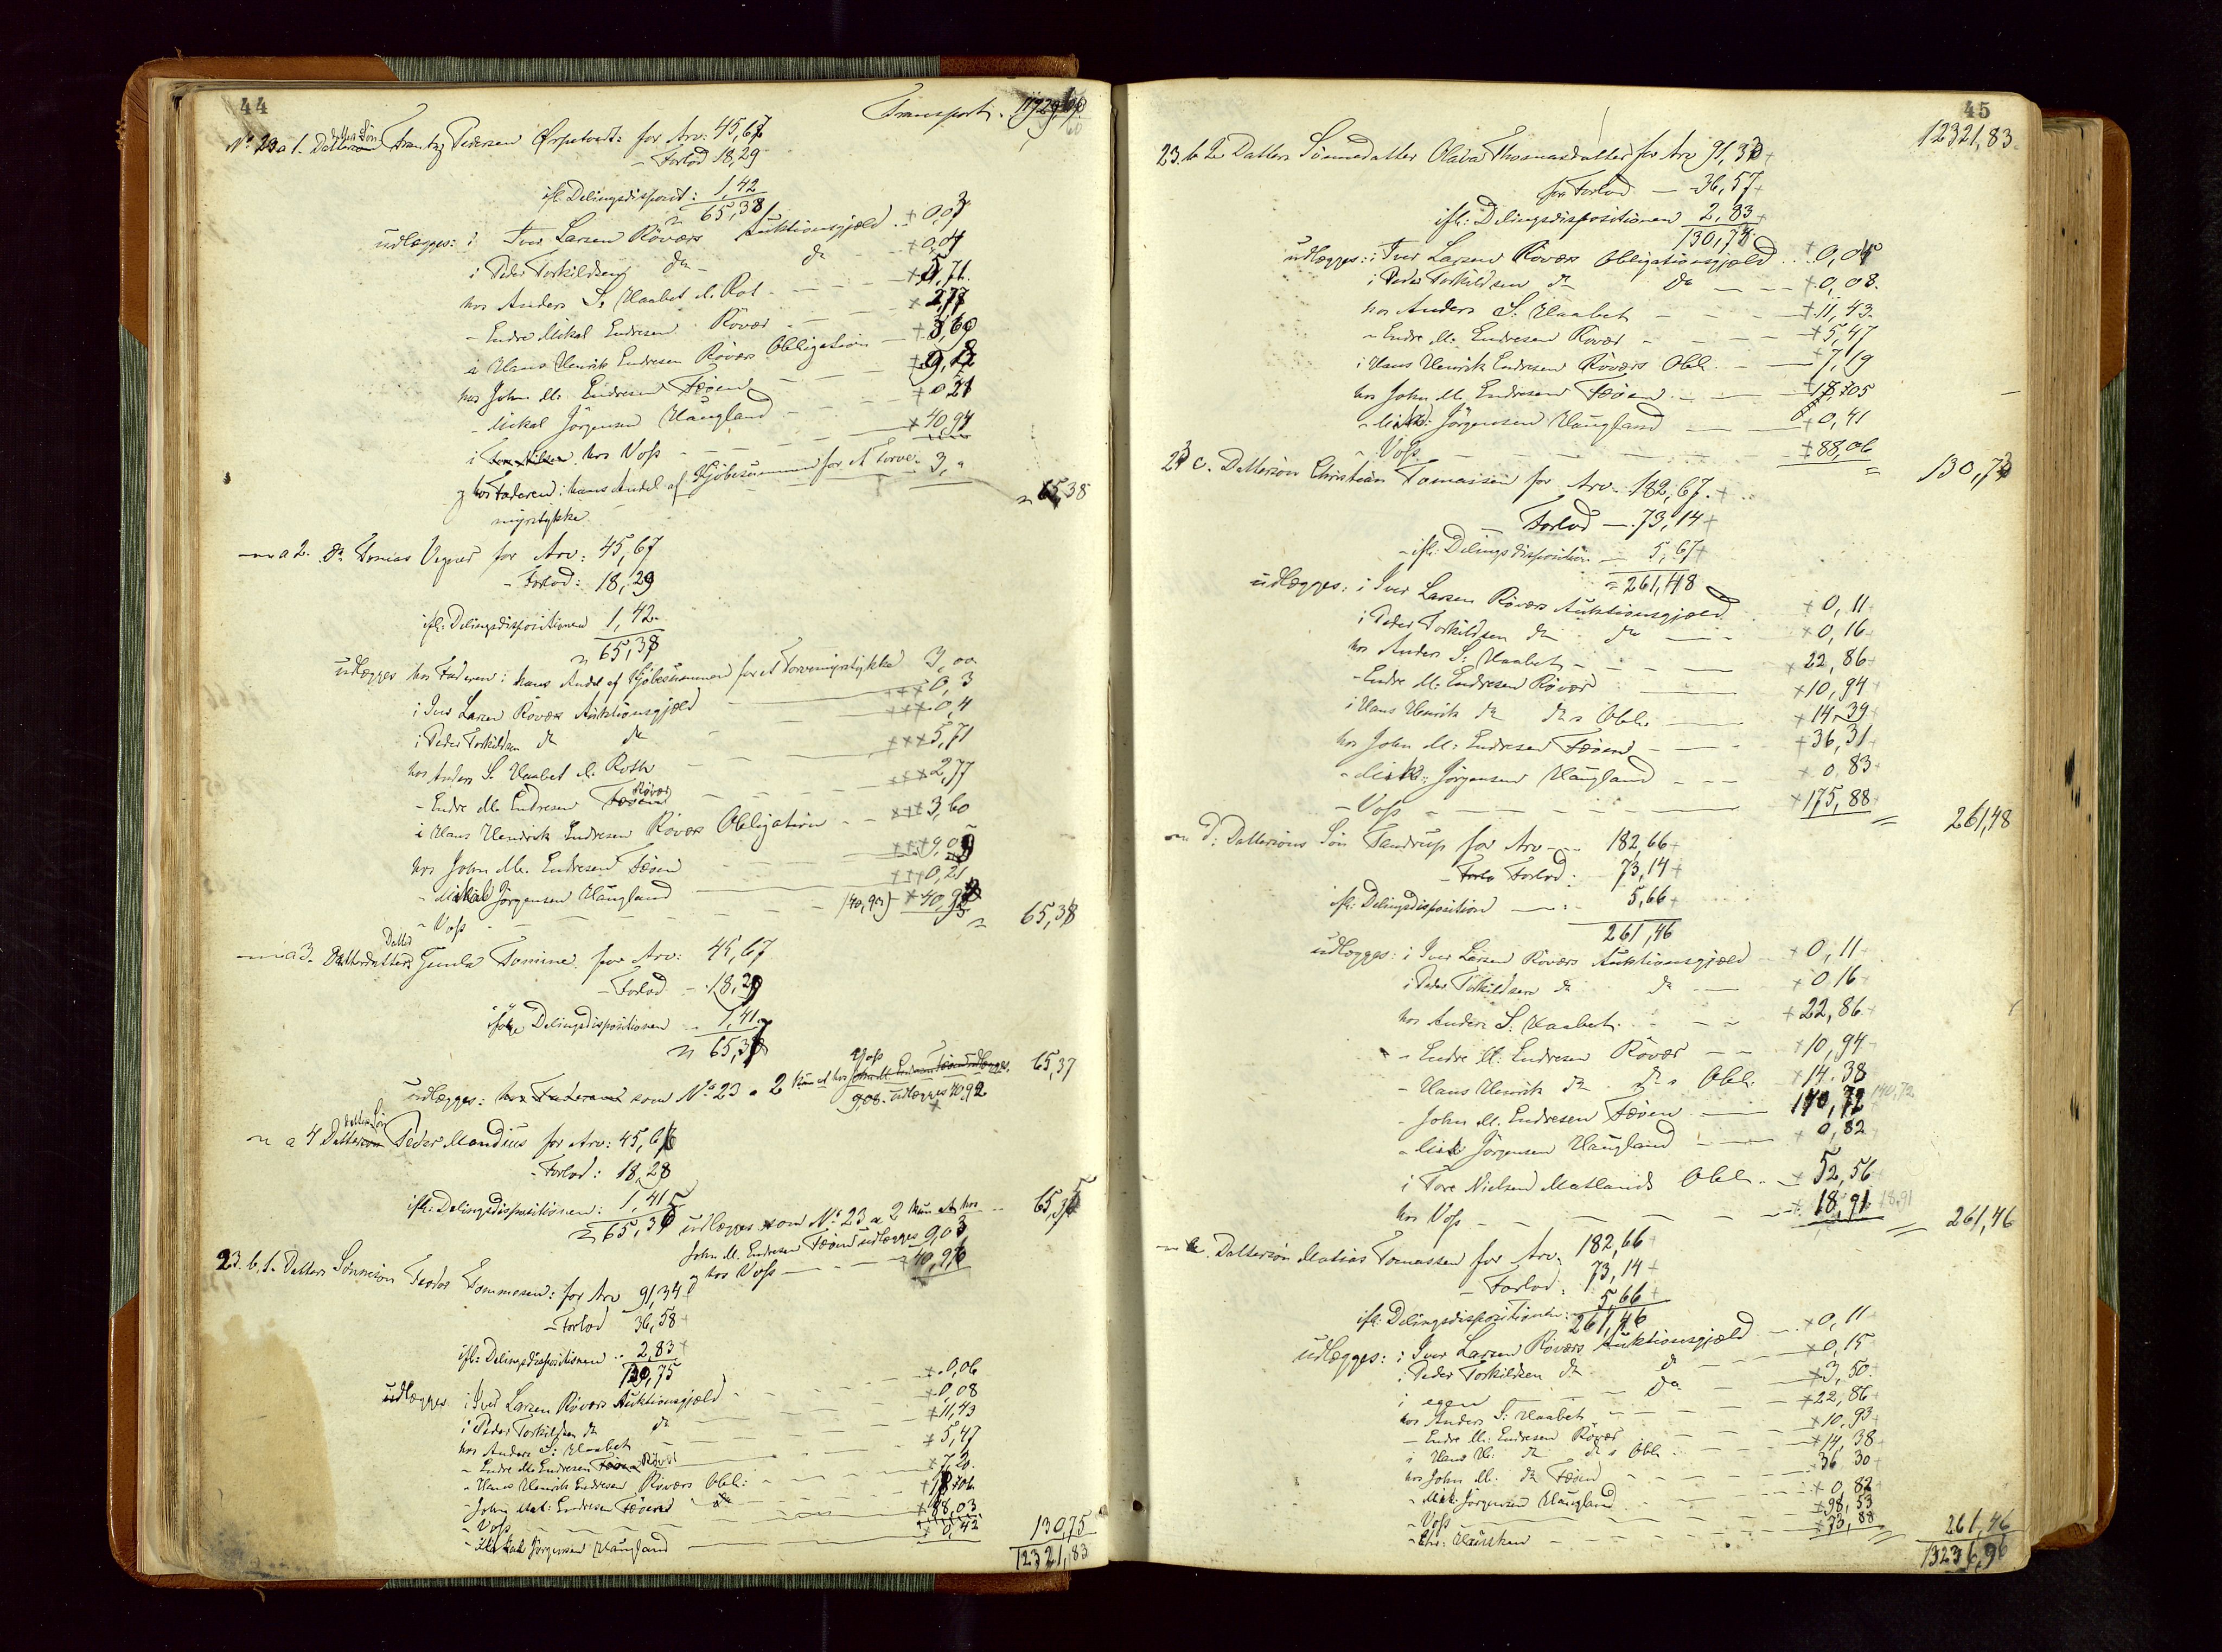 44
Transport.
No 23 a 1. Dattersøn datter Søn Frantz Pedersen for Arv: 45,67
- Forlod 18,29
ifl. Delingsdisposit: 1,42
65,38
udlægges: i Iver Larsen Røværs Auktionsgjæld + 0,03
i Peder Torkildsen do do + 0,04
hos Anders S. Haabet + 5,71.
- Endre Mikal Endresen Røvær + 2,77
i Hans Henrik Endresen Røværs Obligation + 3,60
hos John M. Endresen Fæøen
- Mikal Jørgensen Haugland + 0,21
i hos Voss + 40,94
og hos Faderen: hans Andel af Kjøbesummen for et Torve- 3,"
myrstykke
65,38
a 2. do Tomas Vegner for Arv: 45,67
- Forlod: 18,29
ifl: Delingsdispositionen 1,42
65,38
udlægges hos Faderen: hans Andel af Kjøbesummen for et Torvemyrstykke 3,00
i Iver Larsen Røværs Auktionsgjæld 0,3
i Peder Torkildsen do do 0,4
hos Anders S. Haabet 5,71
- Endre M. Endresen Røvær 2,77
i Hans Hendrik Endresen Røværs Obligation 3,60
hos John M. Endresen Fæøen
- Mikal Jørgensen Haugland 0,21
- Voss (40,93)
65,38
a 3. Datterdatters Datter Gunla Tomine for Arv: 45,67
- Forlod 18,29
ifølge Delingsdispositionen 1,41
65,37
udlægges: som No 23 a 2 kun at hos Voss udlægges 40,92 65,37
a 4 Dattersøn datter Søn Peder Mandius for Arv: 45,66
- Forlod: 18,28
ifl: Delingsdispositionen: 1,41
udlægges som No 23 a 2 kun at hos
John M. Endresen Fæøen udlægges 9,03
og hos Voss
23. b. 1. Datters Sønnesøn Tommesen: for Arv 91,34
- Forlod 36,58
ifl: Delingsdispositionen 2,83
130,75
udlægges i Iver Larsen Røværs Auktionsgjæld + 0,06
i Peder Torkildsen do do + 0,08
hos Anders S. Haabet + 11,43
- Endre M. Endresen Røvær + 5,47
- Hans Henrik Endresen Røværs Obl: + 7,20
- John Mal: Endresen Fæøen
- Voss + 88,03
- Mikal Jørgensen Haugland + 0,42
130,75
12321,83
45
12321,83
23. b 2. Datters Sønnedatter Olava Thomasdatter for Arv 91,33
for Forlod - 36,57
ifl: Delingsdispositionen 2,83
130,73
udlægges: i Iver Larsen Røværs Obligationsgjæld 0,04
i Peder Torkildsen do do + 0,08
hos Anders S. Haabet + 11,43
- Endre M. Endresen Røvær + 5,47
i Hans Henrik Endresen Røværs Obl. + 7,19
hos John M. Endresen Fæøen + 18,05
- Mik: Jørgensen Haugland + 0,41
- Voss + 88,06
130,73
23 c. Dattersøn Christian Tomassen for Arv 182,67
Forlod - 73,14
- ifl: Delingsdisposition - 5,67
= 261,48
udlægges: i Iver Larsen Røværs Auktionsgjæld + 0,11
i Peder Torkildsen do do + 0,16
hos Anders S: Haabet + 22,86
- Endre M: Endresen Røvær + 10,94
i Hans Henrik do do s Obl. + 14,39
hos John M: Endresen Fæøen + 36,31
- Mik: Jørgensen Haugland + 0,83
- Voss + 175,88
261,48
d: Dattersøns Søn Tandrup for Arv 182,66
- Forlod: 73,14
ifl: Delingsdisposition 5,66
261,46
udlægges: i Iver Larsen Røværs Auktionsgjæld + 0,11
i Peder Torkildsen do do + 0,16
hos Anders S. Haabet + 22,86
- Endre M: Endresen Røvær + 10,94
- Hans Henrik do do s Obl. + 14,38
- John M. Endresen Fæøen 140,72 140,72
- Mik Jørgensen Haugland + 0,82
i Tore Nielsen Matlands Obl. + 52,56
hos Voss + 18,91 18,91
261,46
e. Dattersøn Matias Tomassen for Arv 182,66
- Forlod: 73,14
ifl: Delingsdispositionen: 5,66
261,46
udlægges: i Iver Larsen Røværs Auktionsgjæld + 0,11
i Peder Torkildsen do do + 0,15
i egen do + 3,50
hos Anders S: Haabet + 22,86
- Endre M: Endresen Røvær + 10,93
i Hans H: do do s Obl + 14,38
hos John M. do Fæøen 36,30
- Mik: Jørgensen Haugland + 0,82
- Voss + 98,53
+ 73,88
261,46
13236,96